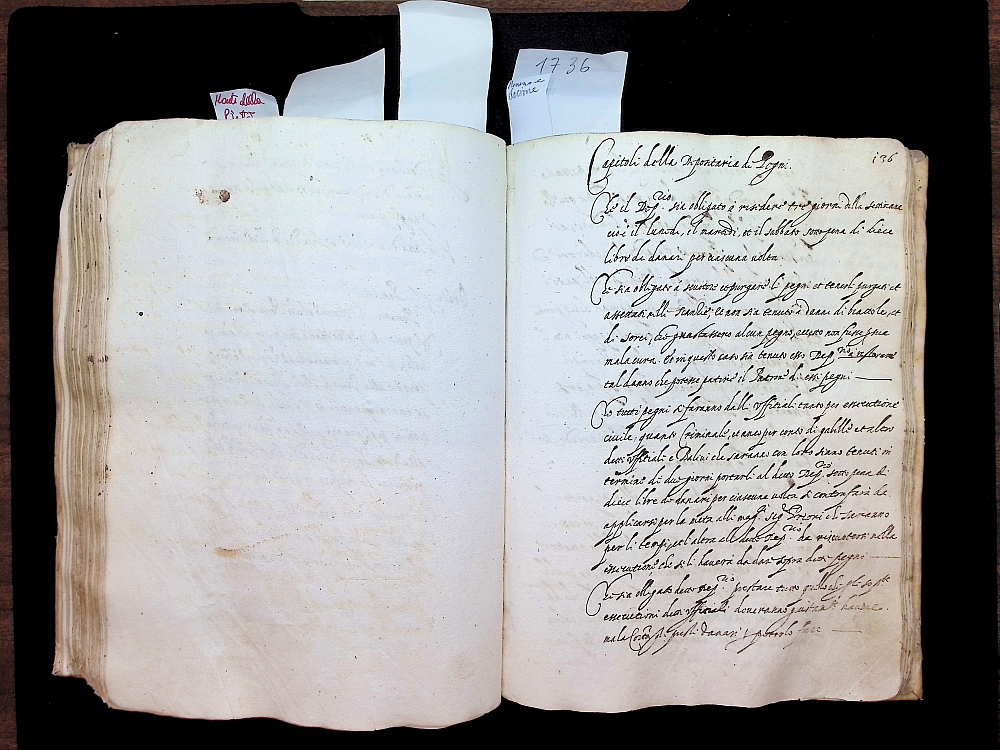 Monte della
Pietà
1736
136
Capitoli della Dipontaria di Pegni.
Che il Dep.rio sia obligato à risedere tre giorni alla settimana
cioè il lunedi, il martedi, et il sabbato sotto pena di diece
libre de danari per ciascuna volta
Che sia obligato à scuotere et spurgare li pegni et tenerli purgati et
assettati nelli scantie, et non sia tenuto à danni di
di sorci, che guastassero alcun pegno, quando non fusse p sua
mala cura. Et in questo caso sia tenuto esso Dep.rio à
tal danno che potesse patire il Patrone di essi pegni
Che tutti pegni si faranno dalli uffitiali tanto per essecutione
civile, quanto criminale, et anco per conto di gabelle et altro
detti uffitiali e Balivi che saranno con loro siano tenuti in
termine di due giorni portarli al detto Dep.rio sotto pena di
diece libre di danari per ciascuna volta si contrafarà da
applicarsi per la metà alli mag.ci sig.ri Priori che saranno
per li tempi, et l'altra al detto Dep.rio da riscuotersi nella
essecutione che se li haverà da dare sopra detti pegni
Che sia obligato detto Dep.rio prestare tutto quello che
essecutioni detti uffitiali doveranno
danari